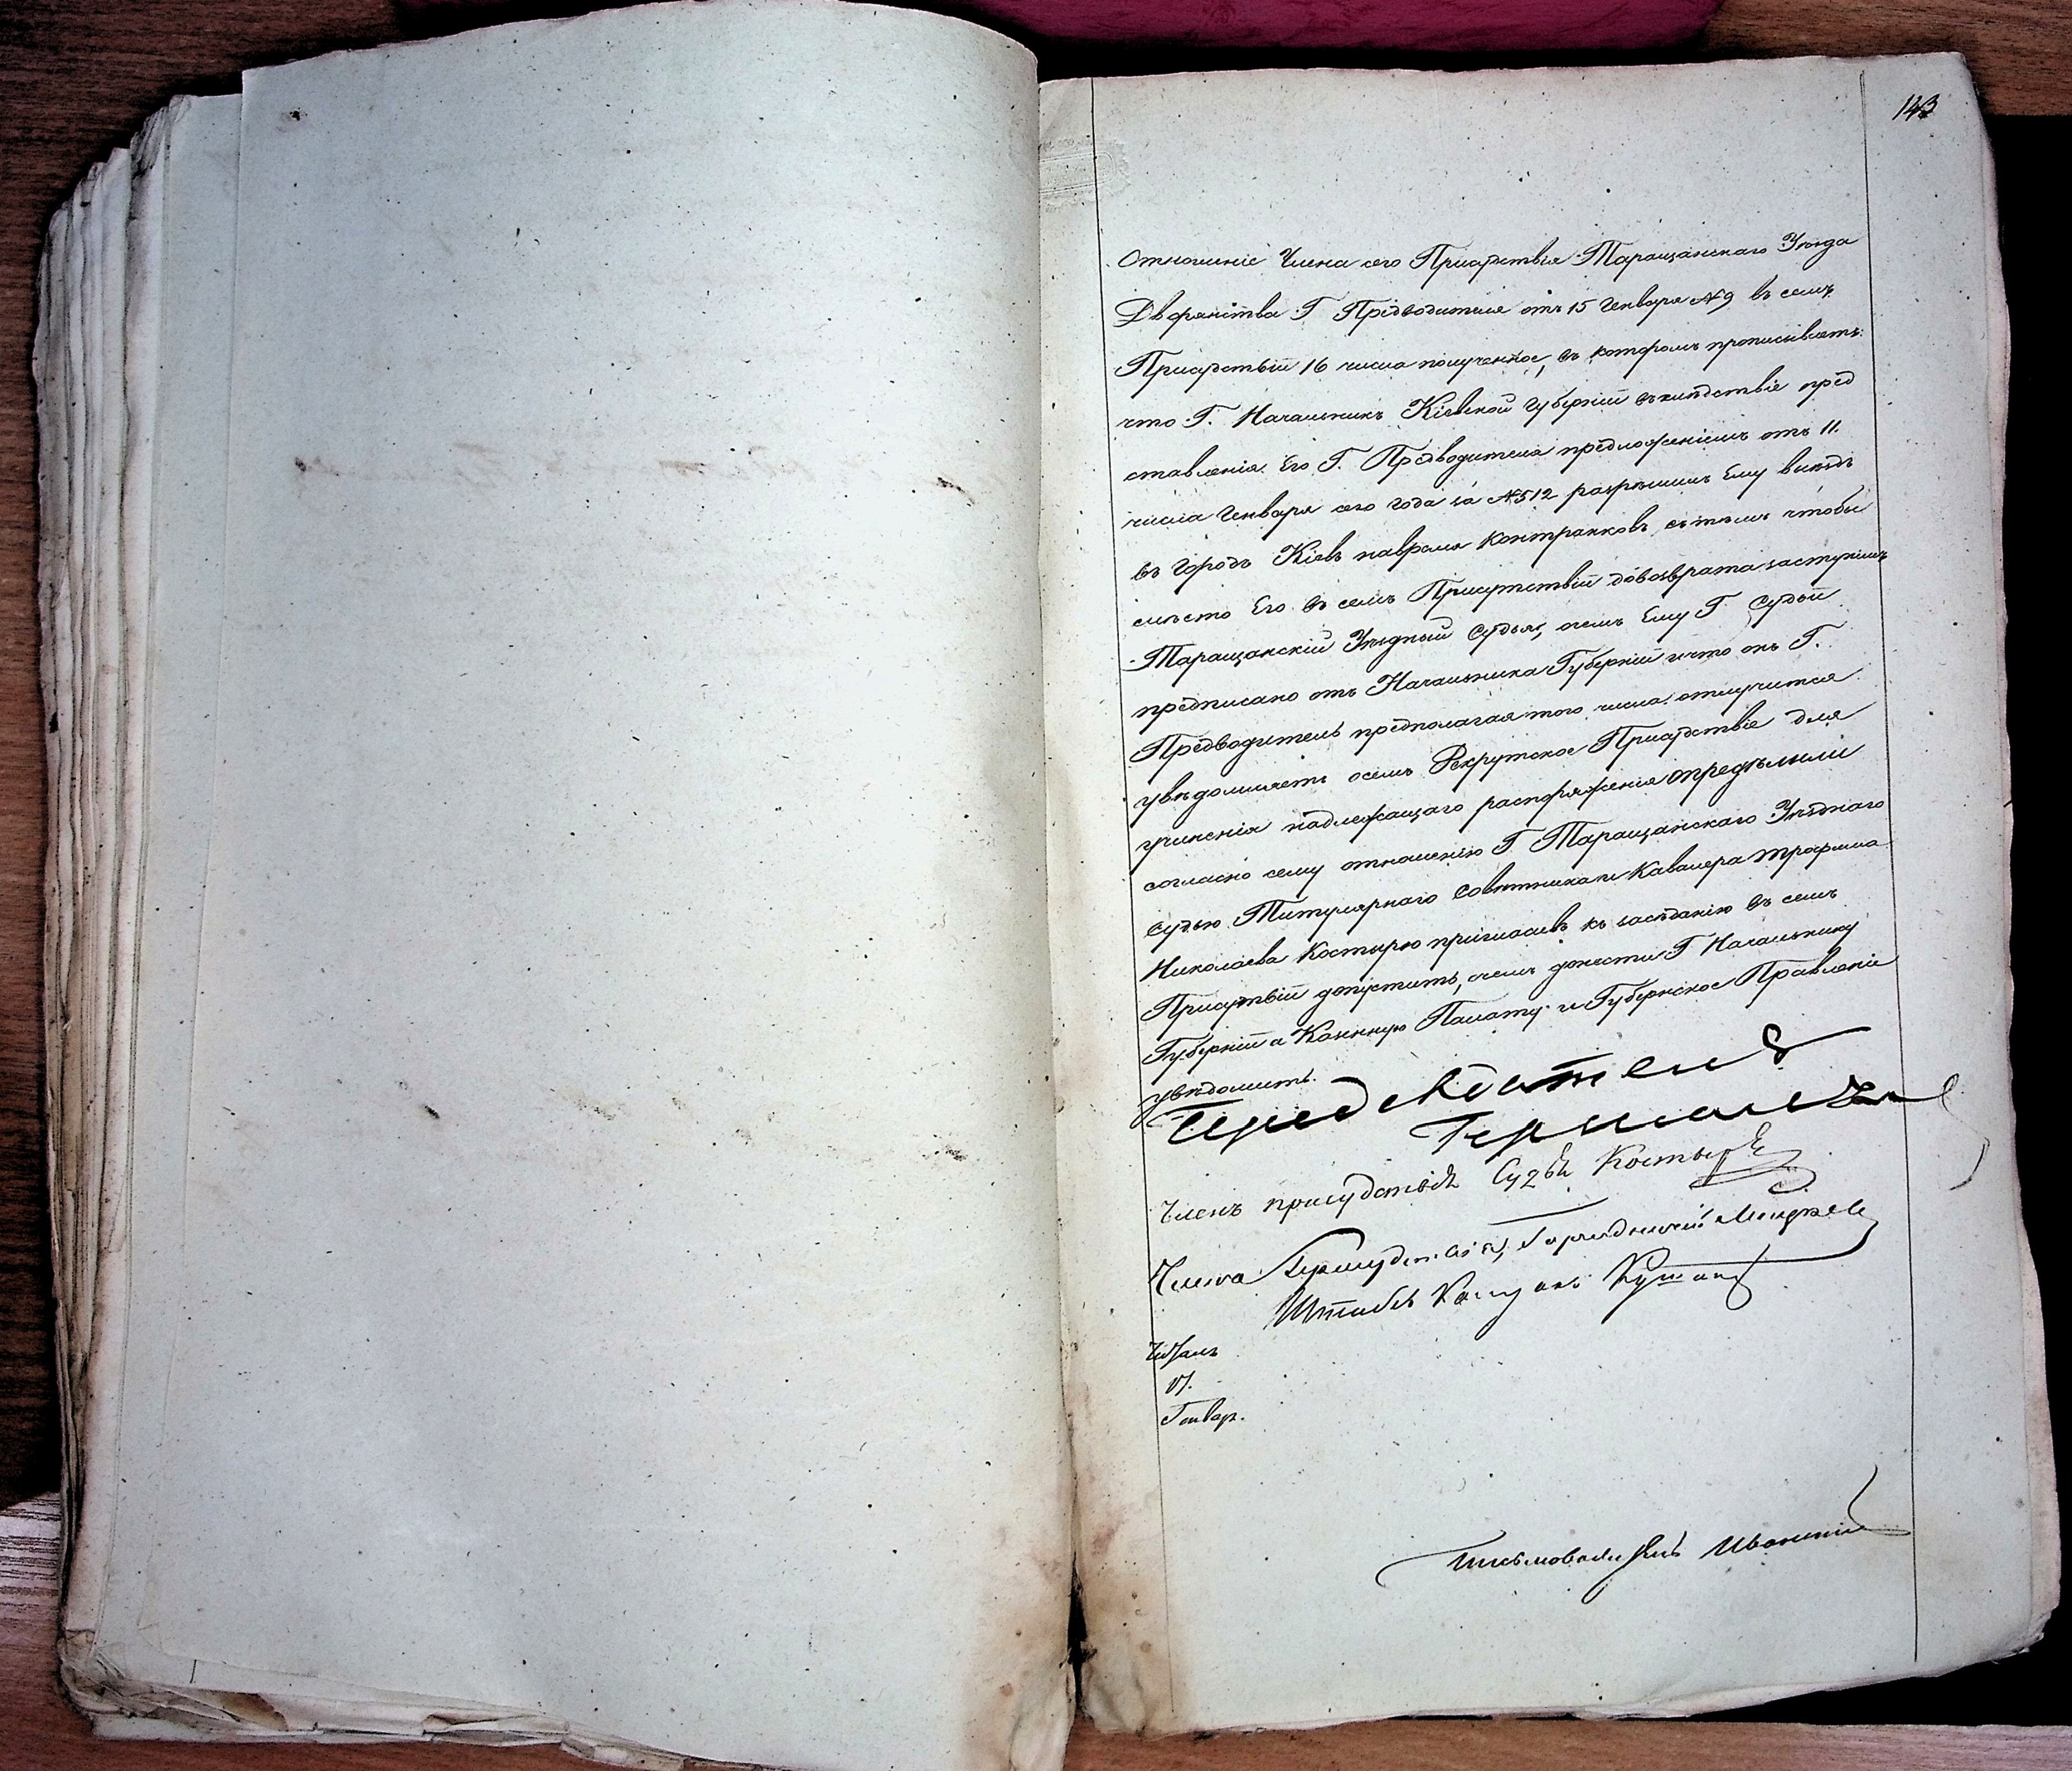 143
Отношеніе Члена сего Присудствія Таращанскаго Уѣзда
Дворянства Г Предводителя отъ 15 Генваря №9 въ семъ
Присудствіи 16 числа полученное, въ которомъ прописываетъ:
что Г. Начальникъ Кіевской Губерніи въ слѣдствіе пред
ставленія Его Г. Предводителя предложеніемъ отъ 11.
числа Генваря сего года за №512 разрѣшилъ Ему выѣздъ
въ Городъ Кіевъ навремя контрактовъ, съ тѣмъ чтобы
вмѣсто Его въ семъ Присутствіи довозврата заступилъ
Таращанскій Уѣздный Судья, очемъ Ему Г. Судьи
предписано отъ Начальника Губерніи и что онъ Г.
Предводитель предполагая того числа отлучится
увѣдомляетъ осемъ Рекрутское Присудствіе для
учиненія надлежащаго распоряженія опредѣлили
согласно сему отношенію Г Таращанскаго Уѣзднаго
Судью Титулярнаго Совѣтника и Кавалера Трофима
Николаева Костырю пригласивъ къ засѣданію въ семъ
Присудствіи допустить, очемъ донести Г Начальнику
Губерніи а Казенную Палату и Губернское Правленіе
увѣдомить.
Предсѣдатель
Членъ присудствія Судья Костыря
Члена Присудствія, Городничій
Штабсъ
Читалъ
17.
Генвар.
Письмоводитель Иванскій